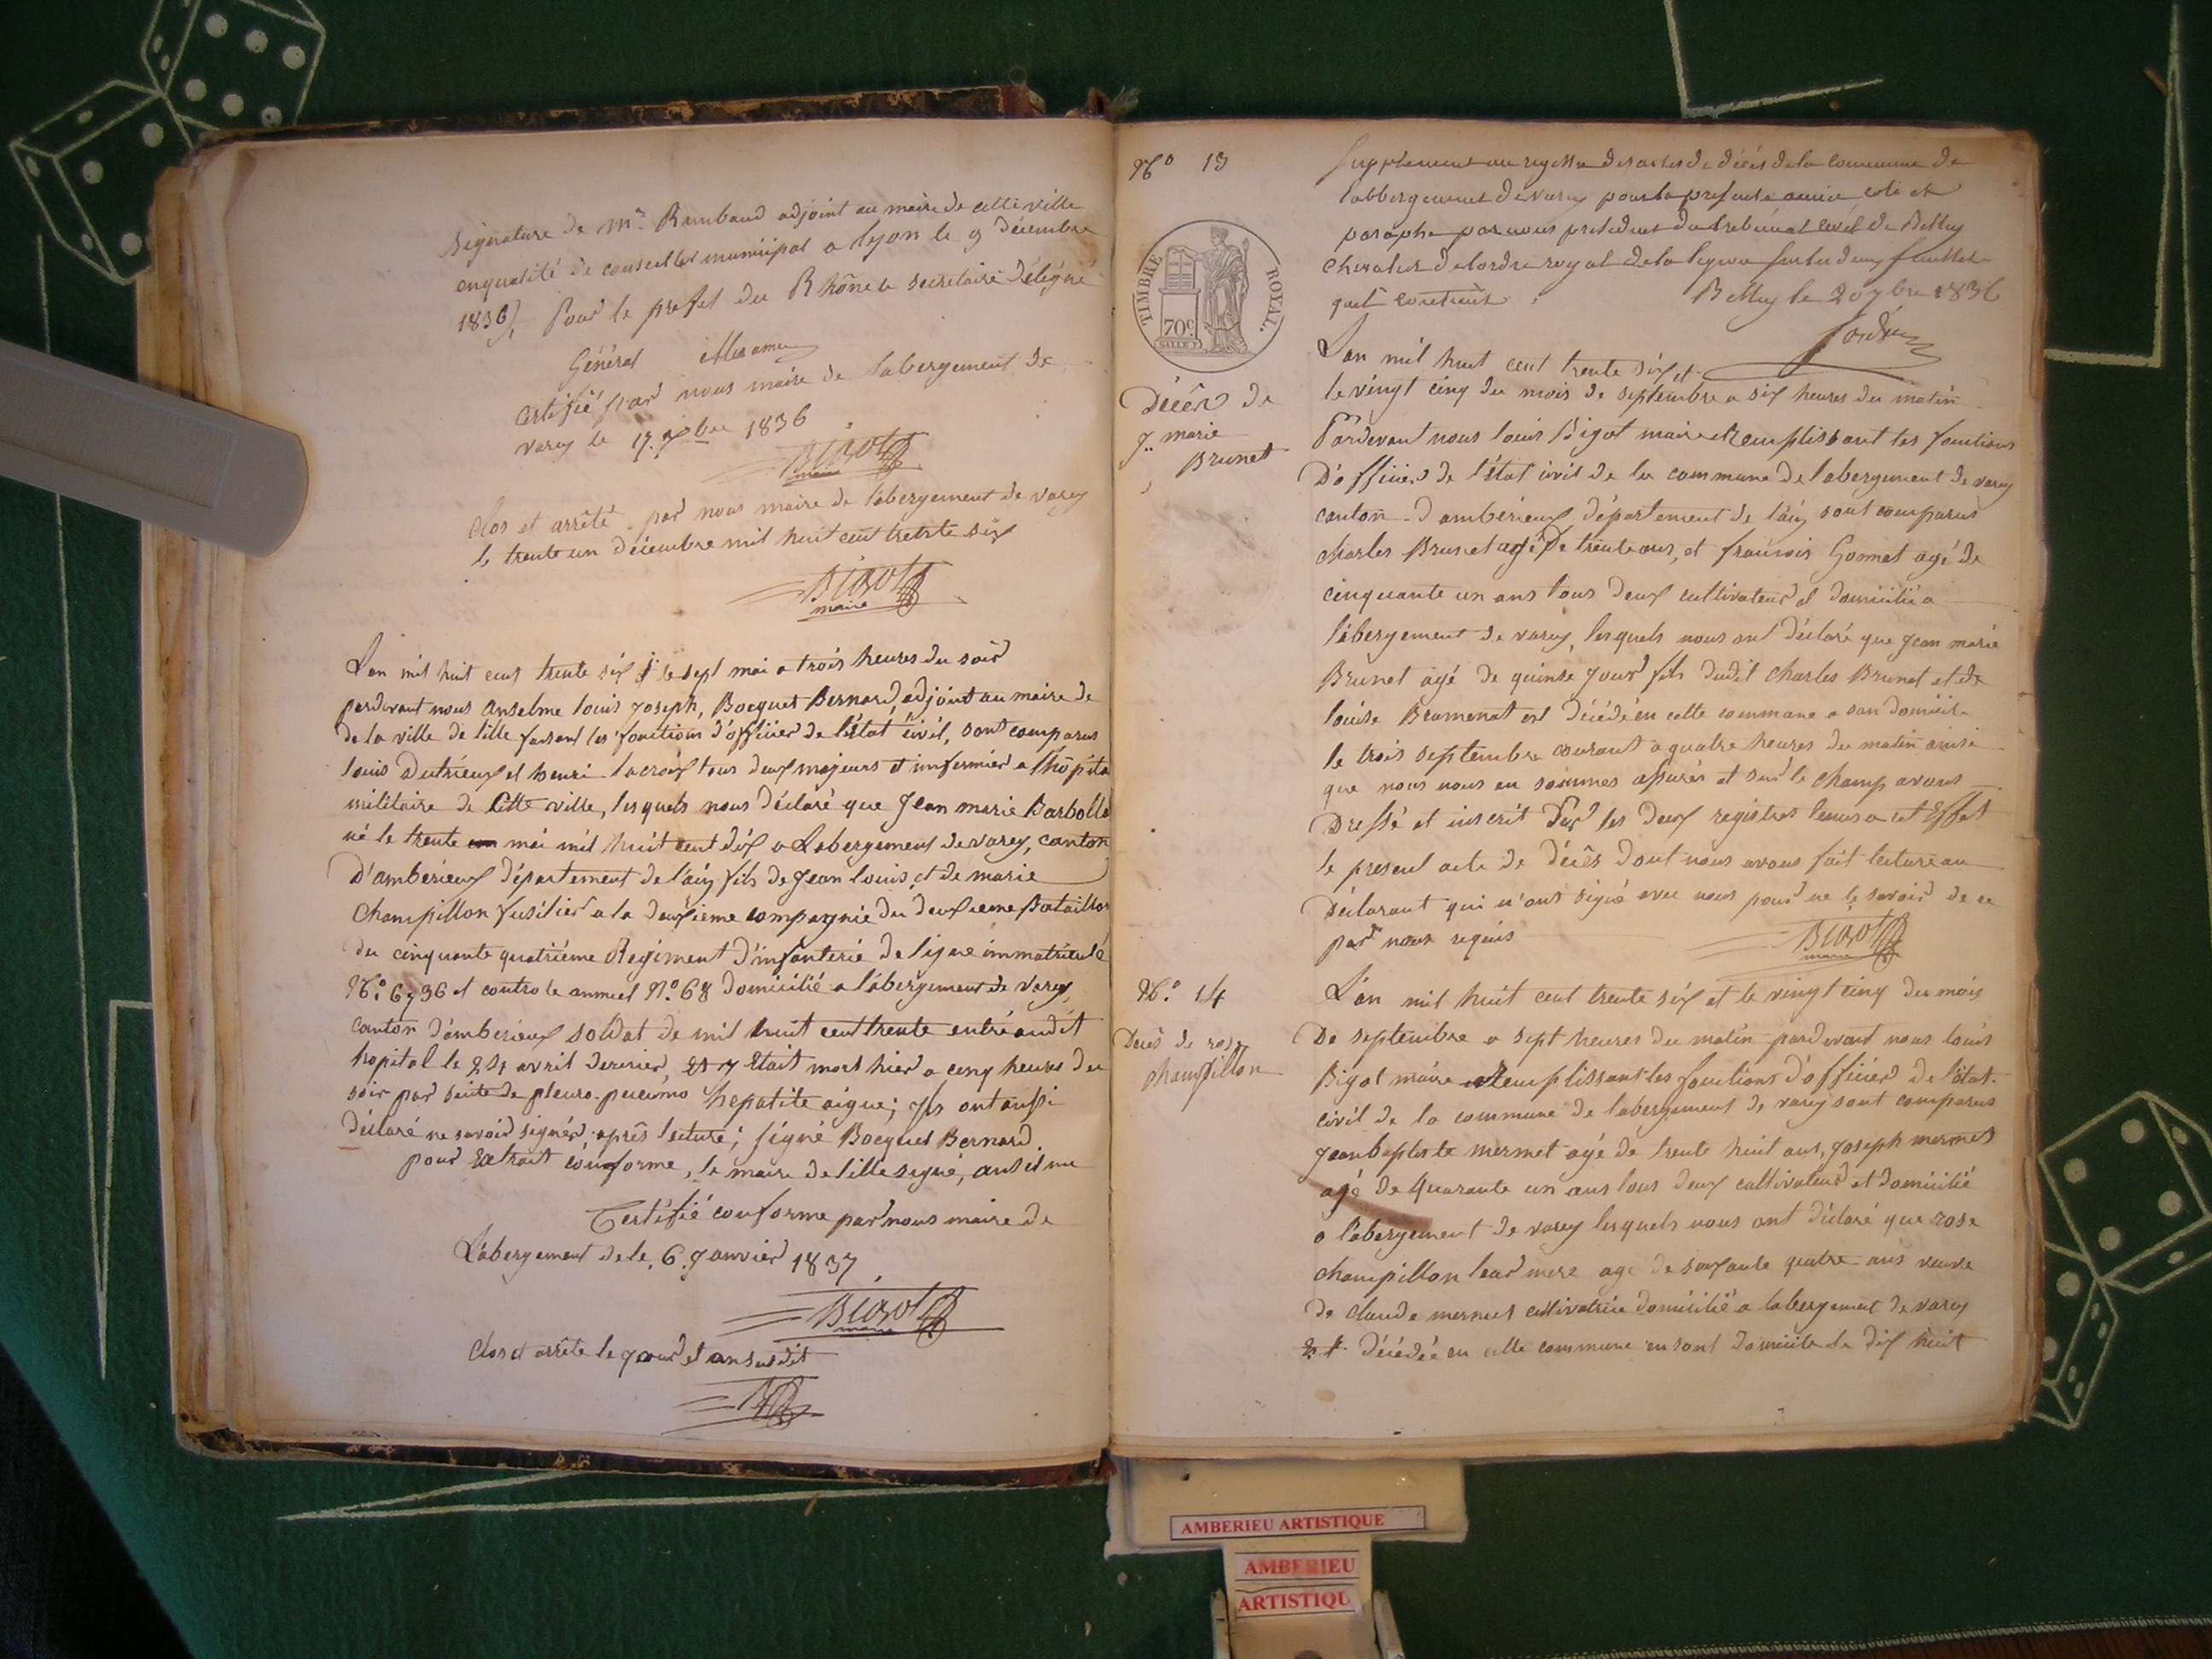 Signature de Mr. Rambaud adjoint au maire de cette ville
en qualité de conseiller municipal a lyon le 9 décembre
1836, Pour le prefet du Rhône le secrétaire délégué
Général
Certifié par nous maire de labergement de
varey le 17. Xbre 1836
BIGOT
maire
Clos et arrêté par nous maire de l'abergement de varey
le trente un décembre mil huit cent trente six
BIGOT
maire
L'an mil huit cent trente six le sept mai a trois heures du soir
pardevant nous Anselme louis joseph, Bocquet Bernard, adjoint au maire de
de la ville de lille faisant les fonctions d'officier de l'état civil, sont comparus
louis Dutrieux et henri lacroix tous deux majeurs et infirmier a l'hôpital
militaire de Cette ville, lesquels nous déclaré que Jean marie Barbollat
né le trente mai mil huit cent dix a Labergement de varey, canton
D'ambérieux département de l'ain fils de Jean louis, et de marie
Champillon fusilier a la deuxieme compagnie du deuxieme Bataillon
du cinquante quatriéme Régiment d'infanterie de ligne immatriculé
No. 6936 et controle annuel No. 68 domicilié a l'abergement de varey,
canton d'amberieux soldat de mil huit cent trente entré audit
hopital le 24 avril dernier, et y etait mort hier a cinq heures du
soir par suite de pleuro-pneumo hepatite aigue; ils ont aussi
déclaré ne savoir signer, après lecture; signé Bocquet Bernard
pour extrait conforme, le maire de lille signé,
Certifié conforme par nous maire de
L'abergement de le, 6. Janvier 1837
BIGOT
maire
Clos et arrêté le jour et an susdit
No 13
Supplement au registre des actes de décés de la commune de
labbergement de varey pour la presente année coté et
paraphe par nous president du tribunal civil de Belley
chevalier de lordre royal de la legion sur les deux feuillets
quil contient. Belley le 20 7bre 1836
TIMBRE ROYAL.
70c.
Décès de
J. marie
Brunet
L'an mil huit cent trente six et
le vingt cinq du mois de septembre a six heures du matin
Pardevant nous louis Bigot maire et remplissant les fonctions
D'officier de l'état civil de la commune de l'abergement de varey
canton d'ambérieux, département de l'ain sont comparus
charles Brunet agé de trente ans, et francois Gonnet agé de
cinquante un ans tous deux cultivateur et domicilié a
l'abergement de varey, lesquels nous ont déclaré que jean marie
Brunet agé de quinse jour fils dudit charles Brunet et de
louise Bramenat est décédé en cette commune a son domicile
le trois septembre courant a quatre heures du matin ainsi
que nous nous en sommes assurés et sur le champ avons
Dressé et inscrit sur les deux registres tenus a cet effet
le present acte de décès dont nous avons fait lecture au
déclarant qui n'ont signé avec nous pour ne le savoir de ce
par nous requis
BIGOT
maire
No. 14
Decès de rose
champillon
L'an mil huit cent trente six et le vingt cinq du mois
De septembre a sept heures du matin pardevant nous louis
Bigot maire et remplissant les fonctions d'officier de l'état-
civil de la commune de labergement de varey sont comparus
jean baptiste mermet agé de trente huit ans, joseph mermet
agé de quarante un ans tous deux cultivateur et domicilié
a l'abergement de varey lesquels nous ont déclaré que rose
champillon leur mere age de soixante quatre ans veuve
de claude mermet cultivatrice domicilié a labergement de varey
Est décédée en cette commune en sont domicile le dix huit
AMBERIEU ARTISTIQUE
AMBERIEU
ARTISTIQU